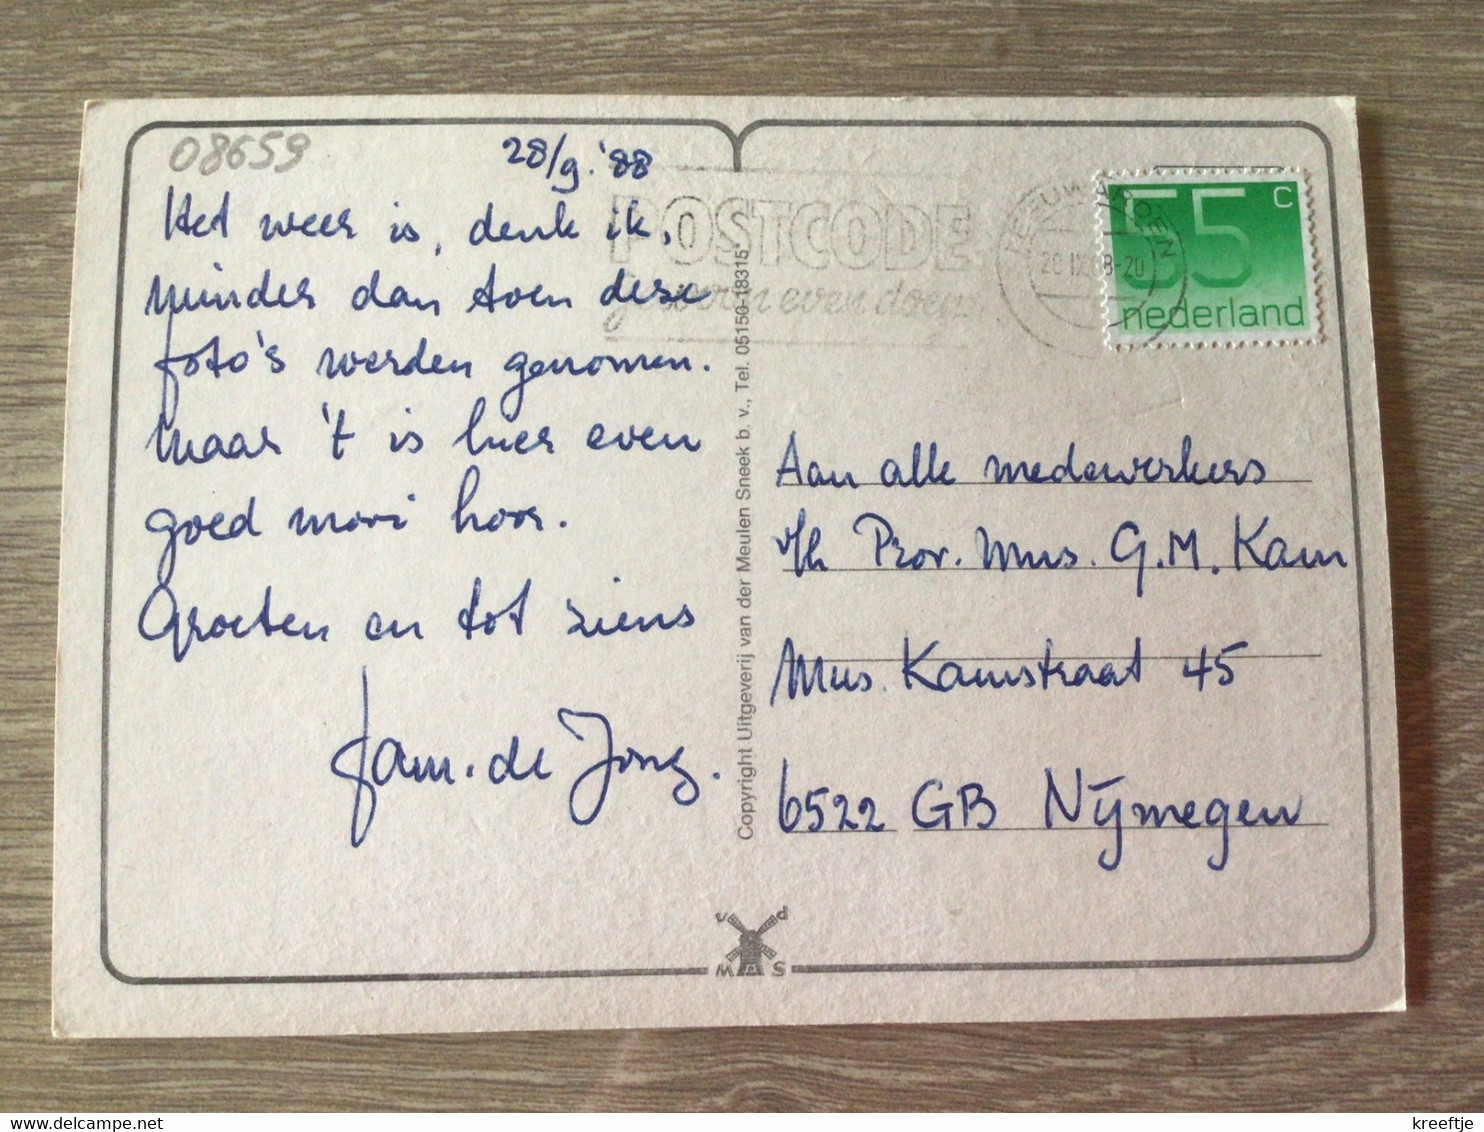 08659
28/9.'88
Het weer is, denk ik,
minder dan toen deze
foto's werden genomen.
Maar 't is hier even
goed mooi hoor.
Groeten en tot ziens
fam. de Jong.
POSTCODE
gewoon even doen
LEEUWARDEN
28.IX.88-20
55 c
nederland
Aan alle medewerkers
v/h Prov. Mus. G.M. Kam
Mus. Kamstraat 45
6522 GB Nijmegen
Copyright Uitgeverij van der Meulen Sneek b.v., Tel. 05150-18315*
v d
M S
delcampe.net
kreeftje